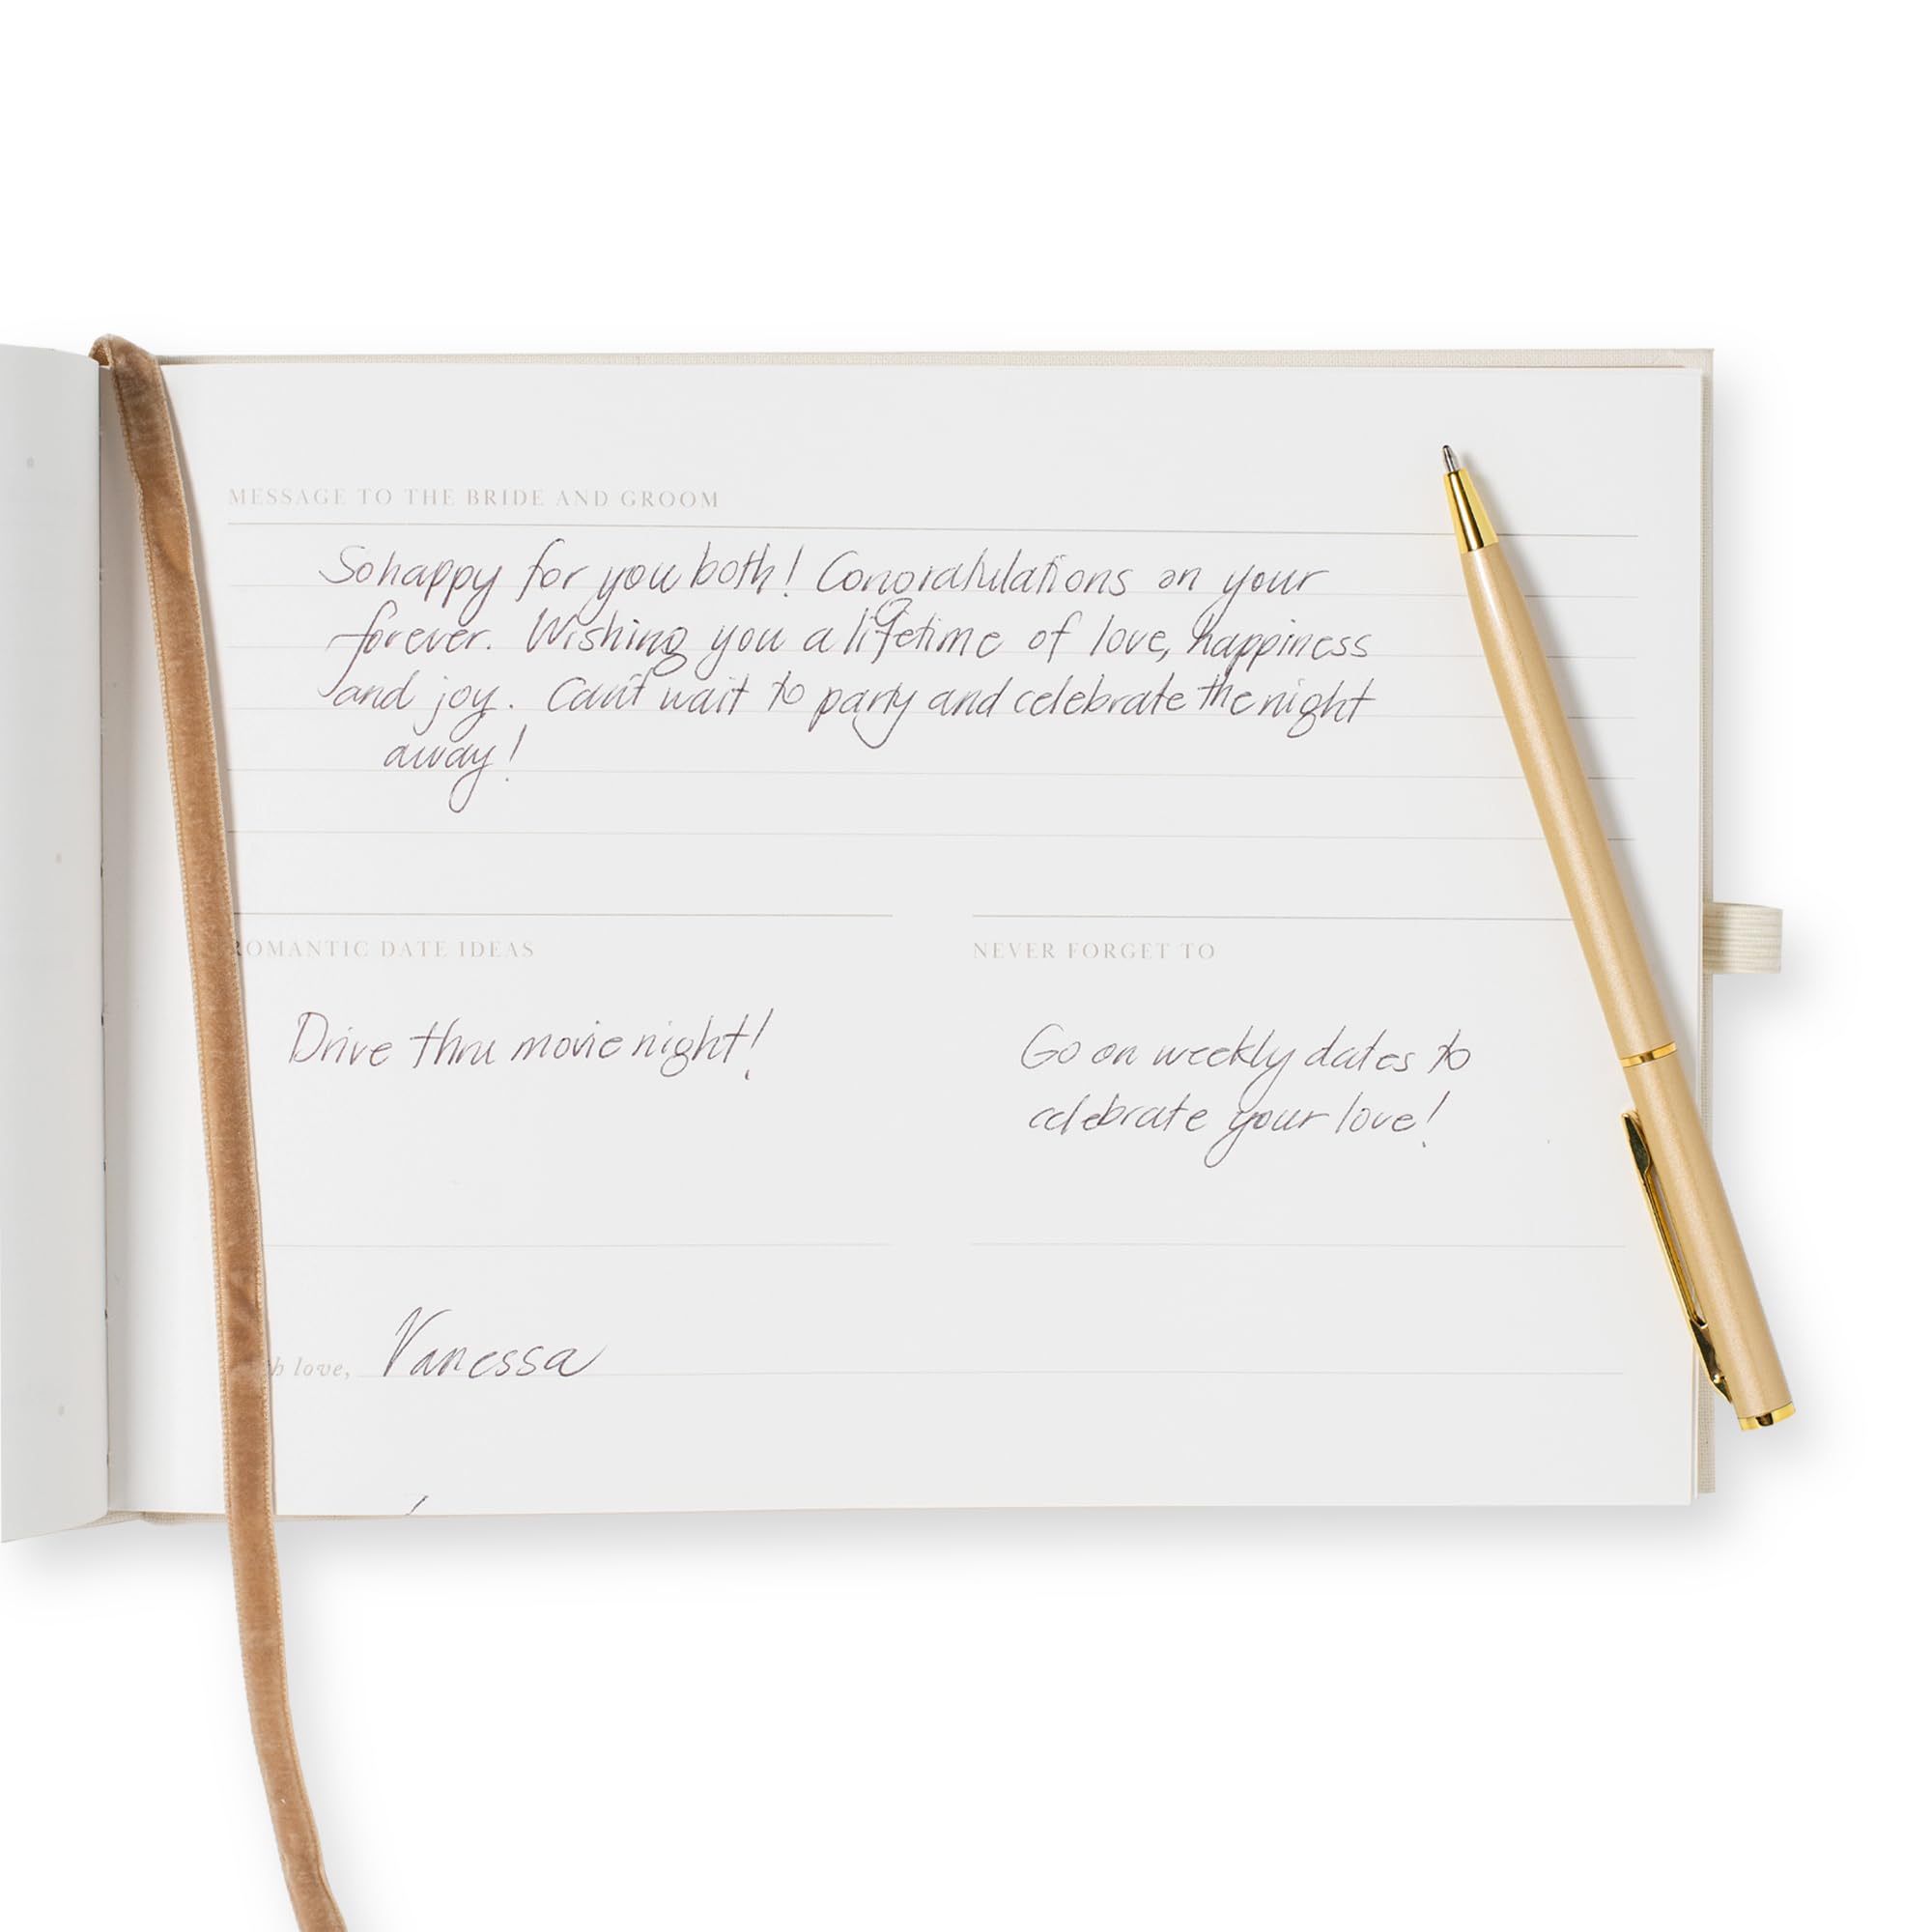 MESSAGE TO THE BRIDE AND GROOM
So happy for you both! Congratulations on your
forever. Wishing you a lifetime of love, happiness
and joy. Can't wait to party and celebrate the night
away!
ROMANTIC DATE IDEAS
Drive thru movie night!
NEVER FORGET TO
Go on weekly dates to
celebrate your love!
h love, Vanessa